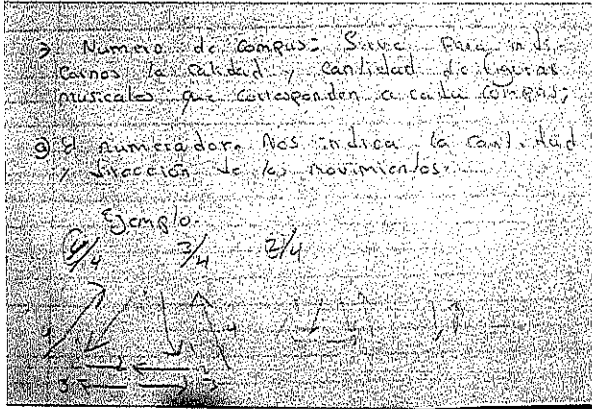 > Numero de compas: Sirve para indi-
carnos la calidad y cantidad de figuras
musicales que corresponden a cada compas;
a) El numerador. Nos indica la cantidad
y dirección de los movimientos.
Ejemplo.
4/4 3/4 2/4
4
2
3 3